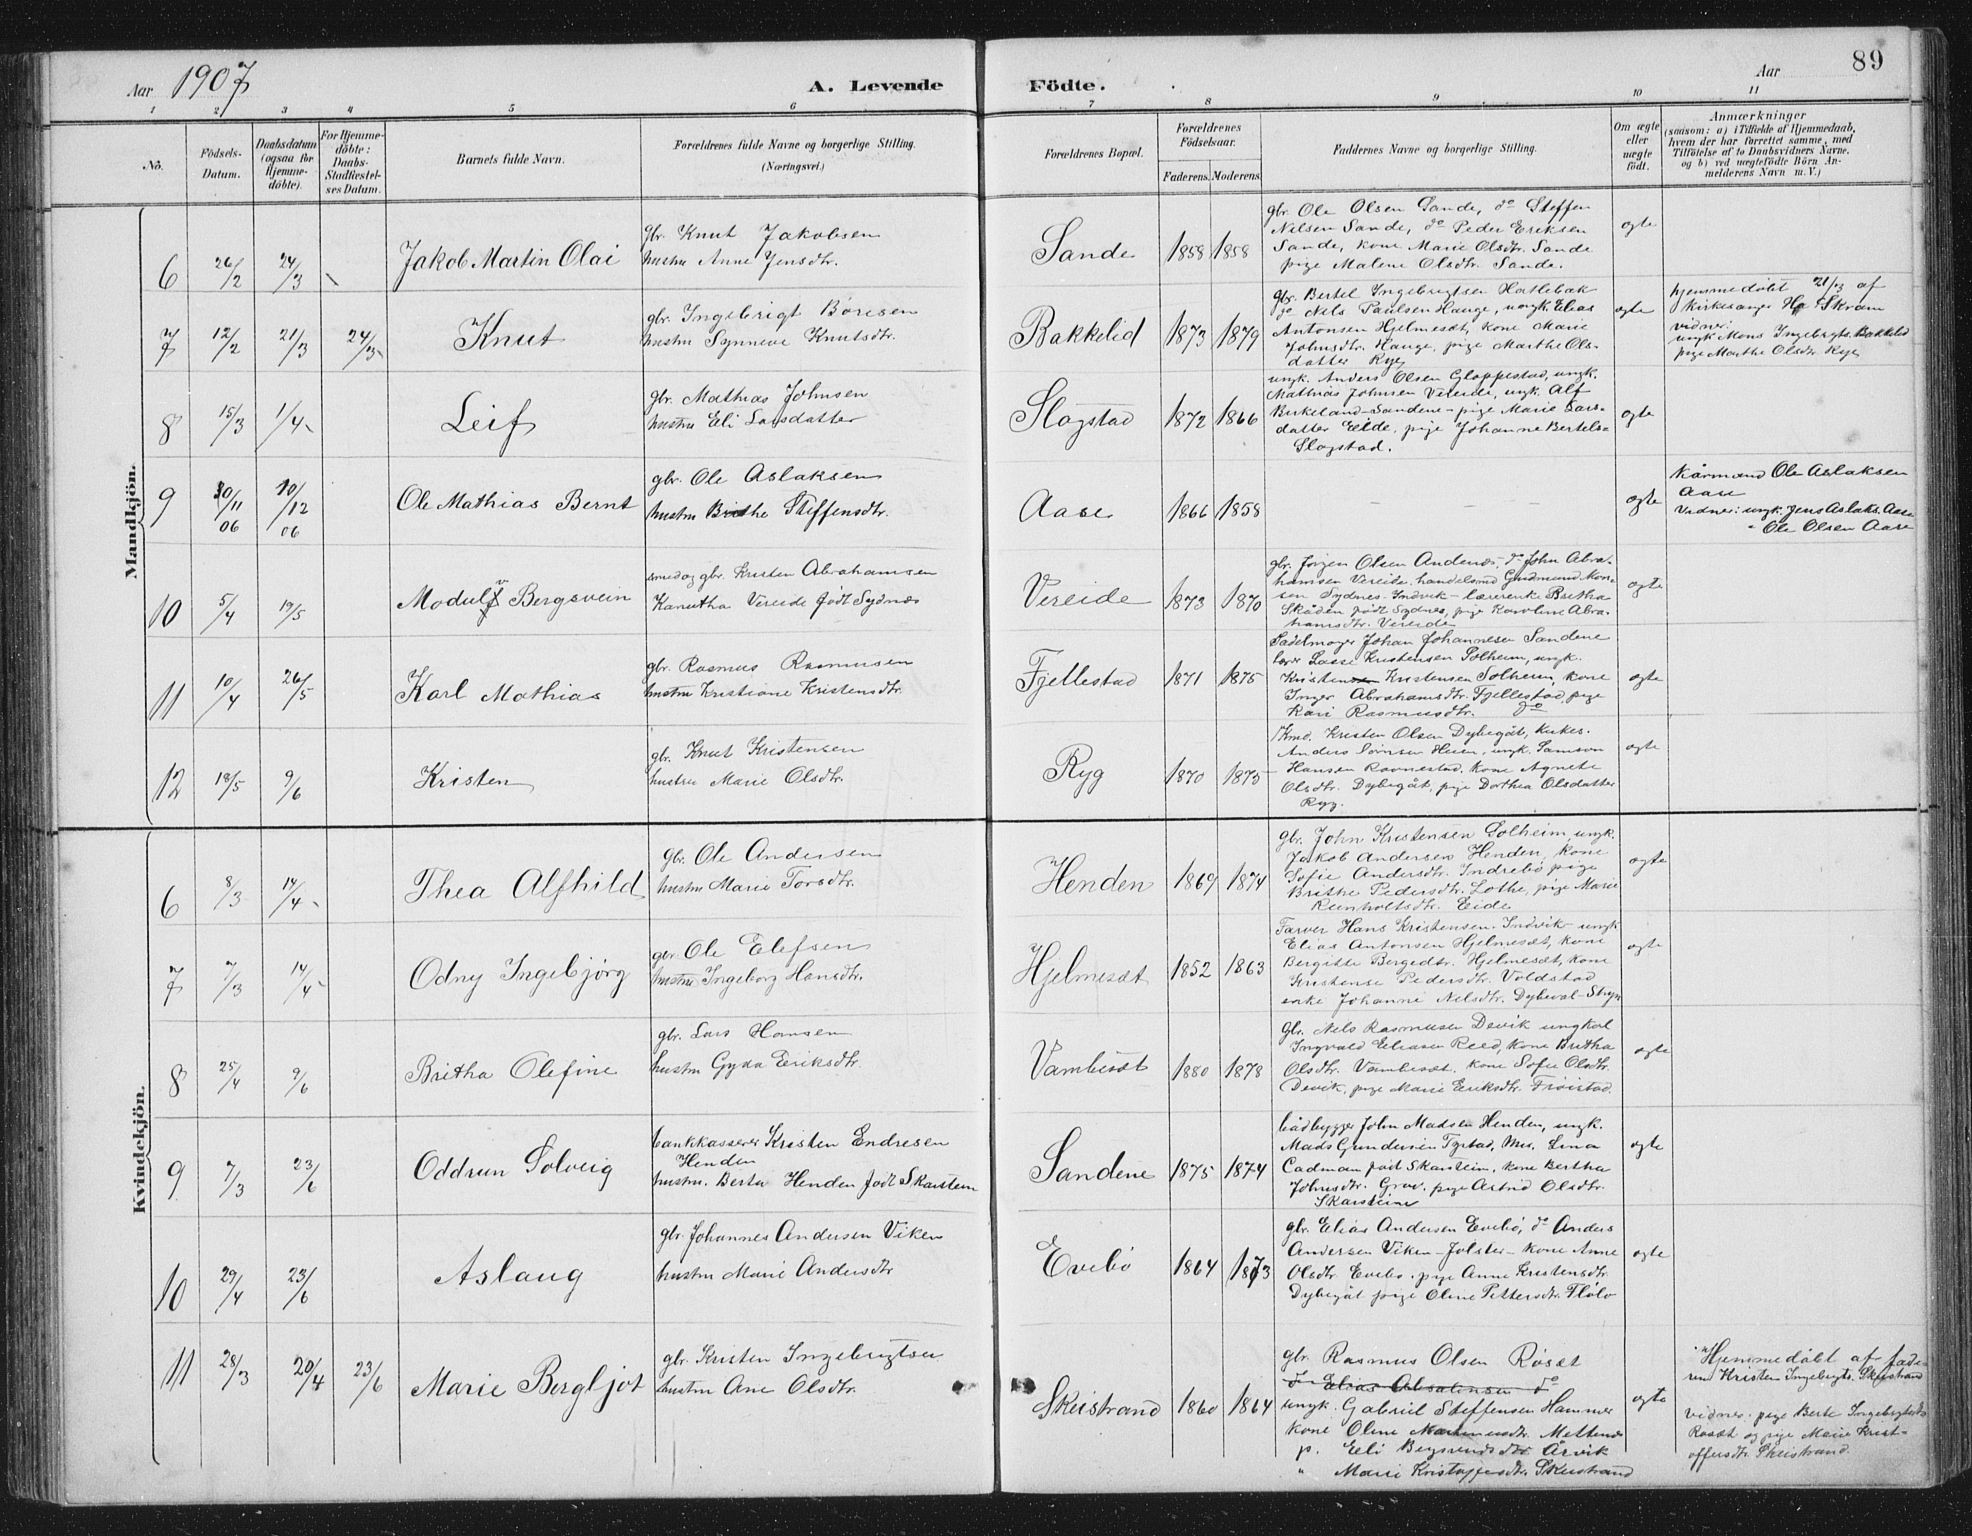 Aar 1907
A. Levende
Födte.
Aar
89
1 2 3 4 5 6 7 8 9 10 11
No.
Födsels-
Datum.
Daabsdatum
(ogsaa for
Hjemme-
döbte).
For Hjemme-
döbte:
Daabs-
Stadfæstel-
ses Datum.
Barnets fulde Navn.
Forældrenes fulde Navne og borgerlige Stilling.
(Næringsvei.)
Forældrenes Bopæl.
Forældrenes
Födselsaar.
Faderens. Moderens.
Faddernes Navne og borgerlige Stilling.
Om ægte
eller
uægte
födt.
Anmærkninger
(saasom: a) i Tilfælde af Hjemmedaab,
hvem der har forrettet samme, med
Tilföielse af to Daabsvidners Navne.
og b) ved uægtefödte Börn An-
melderens Navn m. V.)
Mandkjön.
6 26/2 24/3 Jakob Martin Olai
gbr. Knut Jakobsen
hustru Anne Jensdtr.
Sande 1858 1858
gbr. Ole Olsen Sande, do Steffen
Nilsen Sande, do Peder Eriksen
Sande, kone Marie Olsdtr. Sande
pige Malene Olsdtr. Sande.
ogte
7 12/2 21/3 24/3 Knut
gbr. Ingebrigt Børesen
hustru Synneve Knutsdtr.
Bakkelid 1873 1879
gbr. Bertel Ingebrigtsen Hatlebak
do Nils Paulsen Hauge, ungk. Elias
Antonsen Hjelmesæt, kone Marie
Johnsdtr. Hauge, pige Marthe Ols-
datter Ryg
ogte
hjemmedøbt 21/3 af
Kirkesanger Skram
vidner:
ungk Mons Ingebrigts. Bakkelid
pige Marthe Olsdtr. Ryg
8 15/3 1/4 Leif
gbr. Mathias Johnsen
hustru Eli Larsdatter
Slagstad 1872 1866
ungk. Anders Olsen Gloppestad, ungk.
Mathias Johnsen Vereide, ungk. Alf
Birkeland-Sandene- pige Marie Lars-
datter Eide, pige Johanne Bertels-
Slagstad.
ogte
9 30/11 06 10/12 06 Ole Mathias Bernt
gbr. Ole Aslaksen
hustru Brithe Steffensdtr.
Aase 1866 1858
ogte
Kårmand Ole Aslaksen
Aase
Vidner: ungk. Jens Aslaks. Aase
" Ole Olsen Aase
10 5/4 19/5 Modulv Bergsvein
smed og gbr. Kristen Abrahamsen
Kanutha Vereide født Sydnes
Vereide 1873 1870
gbr. Jørgen Olsen Andenæs, do John Abra-
hamsen Vereide, handelsmd Gudmund Mon-
sen Sydnes-Indvik- lærerenke Britha
Skåden født Sydnes, pige Karoline Abra-
hamsdtr. Vereide
ogte
11 10/4 26/5 Karl Mathias
gbr. Rasmus Rasmusen
hustru Kristiane Kristensdtr.
Fjellestad 1871 1875
Sadelmager Johan Johannesen Sandene
lærer Lasse Kristensen Solheim, ungk.
Kristen Kristensen Solheim, kone
Inger Abrahamsdtr. Fjellestad, pige
Kari Rasmusdtr. do
ogte
12 18/5 9/6 Kristen
gbr. Knut Kristensen
hustru Marie Olsdtr.
Ryg 1870 1875
Kmd. Kristen Olsen Dybegåt, Kirkes.
Anders Sørnsen Heien, ungk. Samson
Hansen Ravnestad, kone Agnete
Olsdtr. Dybegåt, pige Dorthea Olsdatter
Ryg.
ogte
Kvindekjön.
6 8/3 14/4 Thea Alfhild
gbr. Ole Andersen
hustru Marie Torsdtr.
Henden 1869 1874
gbr. John Kristensen Solheim, ungk.
Jakob Andersen Henden, kone
Sofie Andersdtr. Indrebø, pige
Brithe Pedersdtr. Lothe, pige Marie
Reinholtsdtr. Eide
ogte
7 7/3 14/4 Odny Ingebjörg
gbr Ole Elefsen
hustru Ingeborg Hansdtr.
Hjelmesæt 1852 1863
Farver Hans Kristensen-Indvik- ungk
Elias Antonsen Hjelmesæt, kone
Bergitte Bergedtr. Hjelmesæt, kone
Kristense Pedersdtr. Voldstad
enke Johanne Nilsdtr. Dybeval-Stryn
ogte
8 25/4 9/6 Britha Olefine
gbr. Lars Hansen
hustru Gyda Eriksdtr.
Vambesæt 1880 1878
gbr. Nels Rasmusen Devik ungkal
Ingvald Eliasen Reed, kone Britha
Olsdtr. Vambesæt, kone Sofie Olsdtr.
Devik, pige Marie Eriksdtr. Frøistad.
ogte
9 7/3 23/6 Oddrun Solveig
bankkasserer Kristen Endresen
Henden
hustru. Berta Henden født Skarstein
Sandene 1875 1874
bådbygger John Madsen Henden, ungk.
Mads Gundersen Tystad, Mrs. Lina
Cadman født Skarstein, kone Bertha
Johnsdtr. Grov, pige Astrid Olsdtr.
Skarstein
ogte
10 29/4 23/6 Aslaug
gbr. Johannes Andersen Viken
hustru Marie Andersdtr
Evebö 1864 1873
gbr. Elias Andersen Evebö, do Anders
Andersen Viken-Jølster- kone Anne
Olsdtr Evebø, pige Anne Kristensdtr.
Dybegåt pige Oline Pettersdtr. Flølo
ogte
11 28/3 20/4 23/6 Marie Bergljot
gbr. Kristen Ingebrigtsen
hustru Ane Olsdtr.
Skeistrand 1860 1864
gbr. Rasmus Olsen Røsæt
do Elias Absalonsen do
ungk. Gabriel Steffensen Hammer
kone Oline dtr. Mettenes
p. Eli Arvik
" Marie Kristoffersdtr. Skeistrand
ogte
Hjemmedöbt af fade-
ren Kristen Ingebrigts. Skeistrand
vidner: pige Berte Ingebrigtsdtr
Røsæt og pige Marie Krist-
offersdtr. Skeistrand.